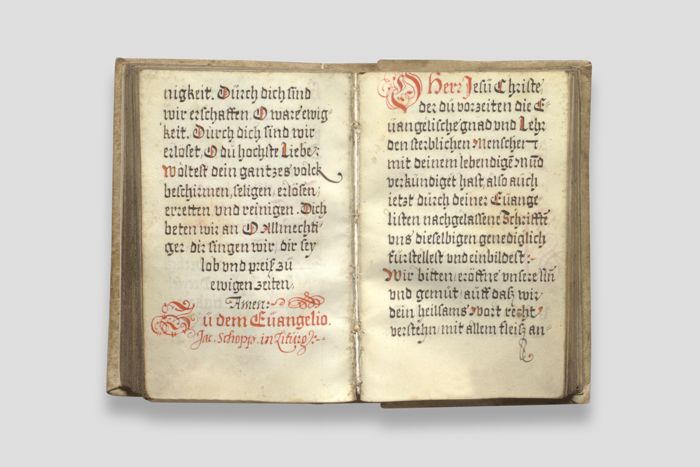 nigkeit. Dürch dich sind
wir erschaffen. O ware ewig
keit. Dürch dich sind wir
erloset, O dü hochste Liebe:
Woltest dein gantzes volck
beschirmen, seligen, erlösen,
erretten vnd reinigen. Dich
beten wir an O Allmechti
ger, dir singen wir, dir sey
lob vnd preiß zü
ewigen zeiten,
Amen:
Zü dem Eüangelio.
Jac. Schopp. in Liturg:
O Herr Jesü Christe
der dü vorzeiten die E
üangelische gnad vnd Lehr
den sterblichen Menschen
mit deinem lebendigē Mūd
verkündiget hast, also auch
ietzt dürch deiner Eüange
listen nachgelassene Schrifftē
vns dieselbigen genediglich
fürstellest vnd einbildest:
Wir bitten, eröffne vnsere siñ
vnd gemüt, aüff daß wir
dein heilsams Wort recht
verstehn, mit allem fleiß an